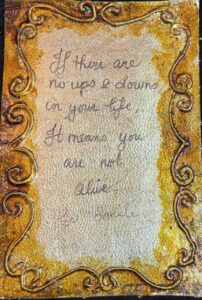 If there are
no ups & downs
in your life,
It means you
are not
alive.
"Smile